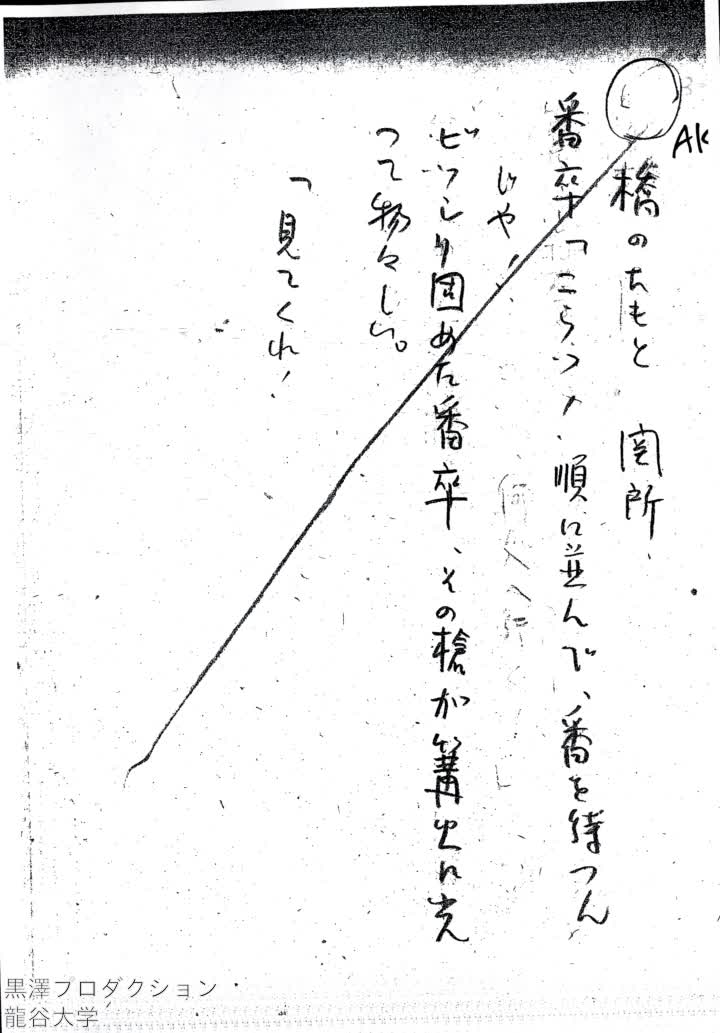 AK
橋のたもと　関所
番卒「こらッ、順に並んで、番を待つん
じゃ！」
ビッシリ固めた番卒、その槍が篝火に光
って物々しい。
「見てくれ！
黒澤プロダクション
龍谷大学